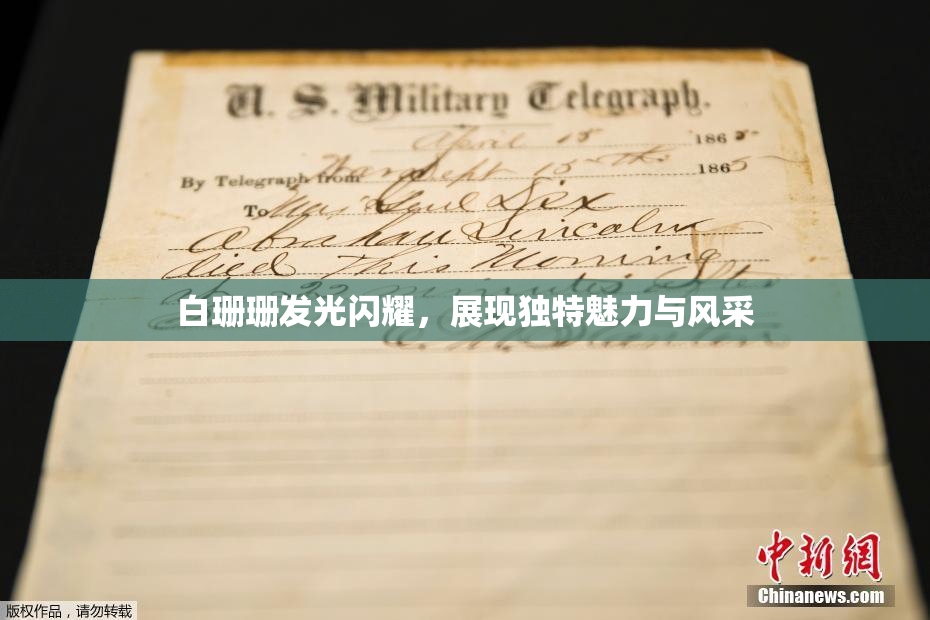 U. S. Military Telegraph.
April 15 1865
By Telegraph from War Dept 15th 1865
To Maj Genl Dix
Abraham Lincoln
died This Morning
at 22 minutes after
白珊珊发光闪耀，展现独特魅力与风采
E. M. Stanton
中新网
Chinanews.com
版权作品，请勿转载